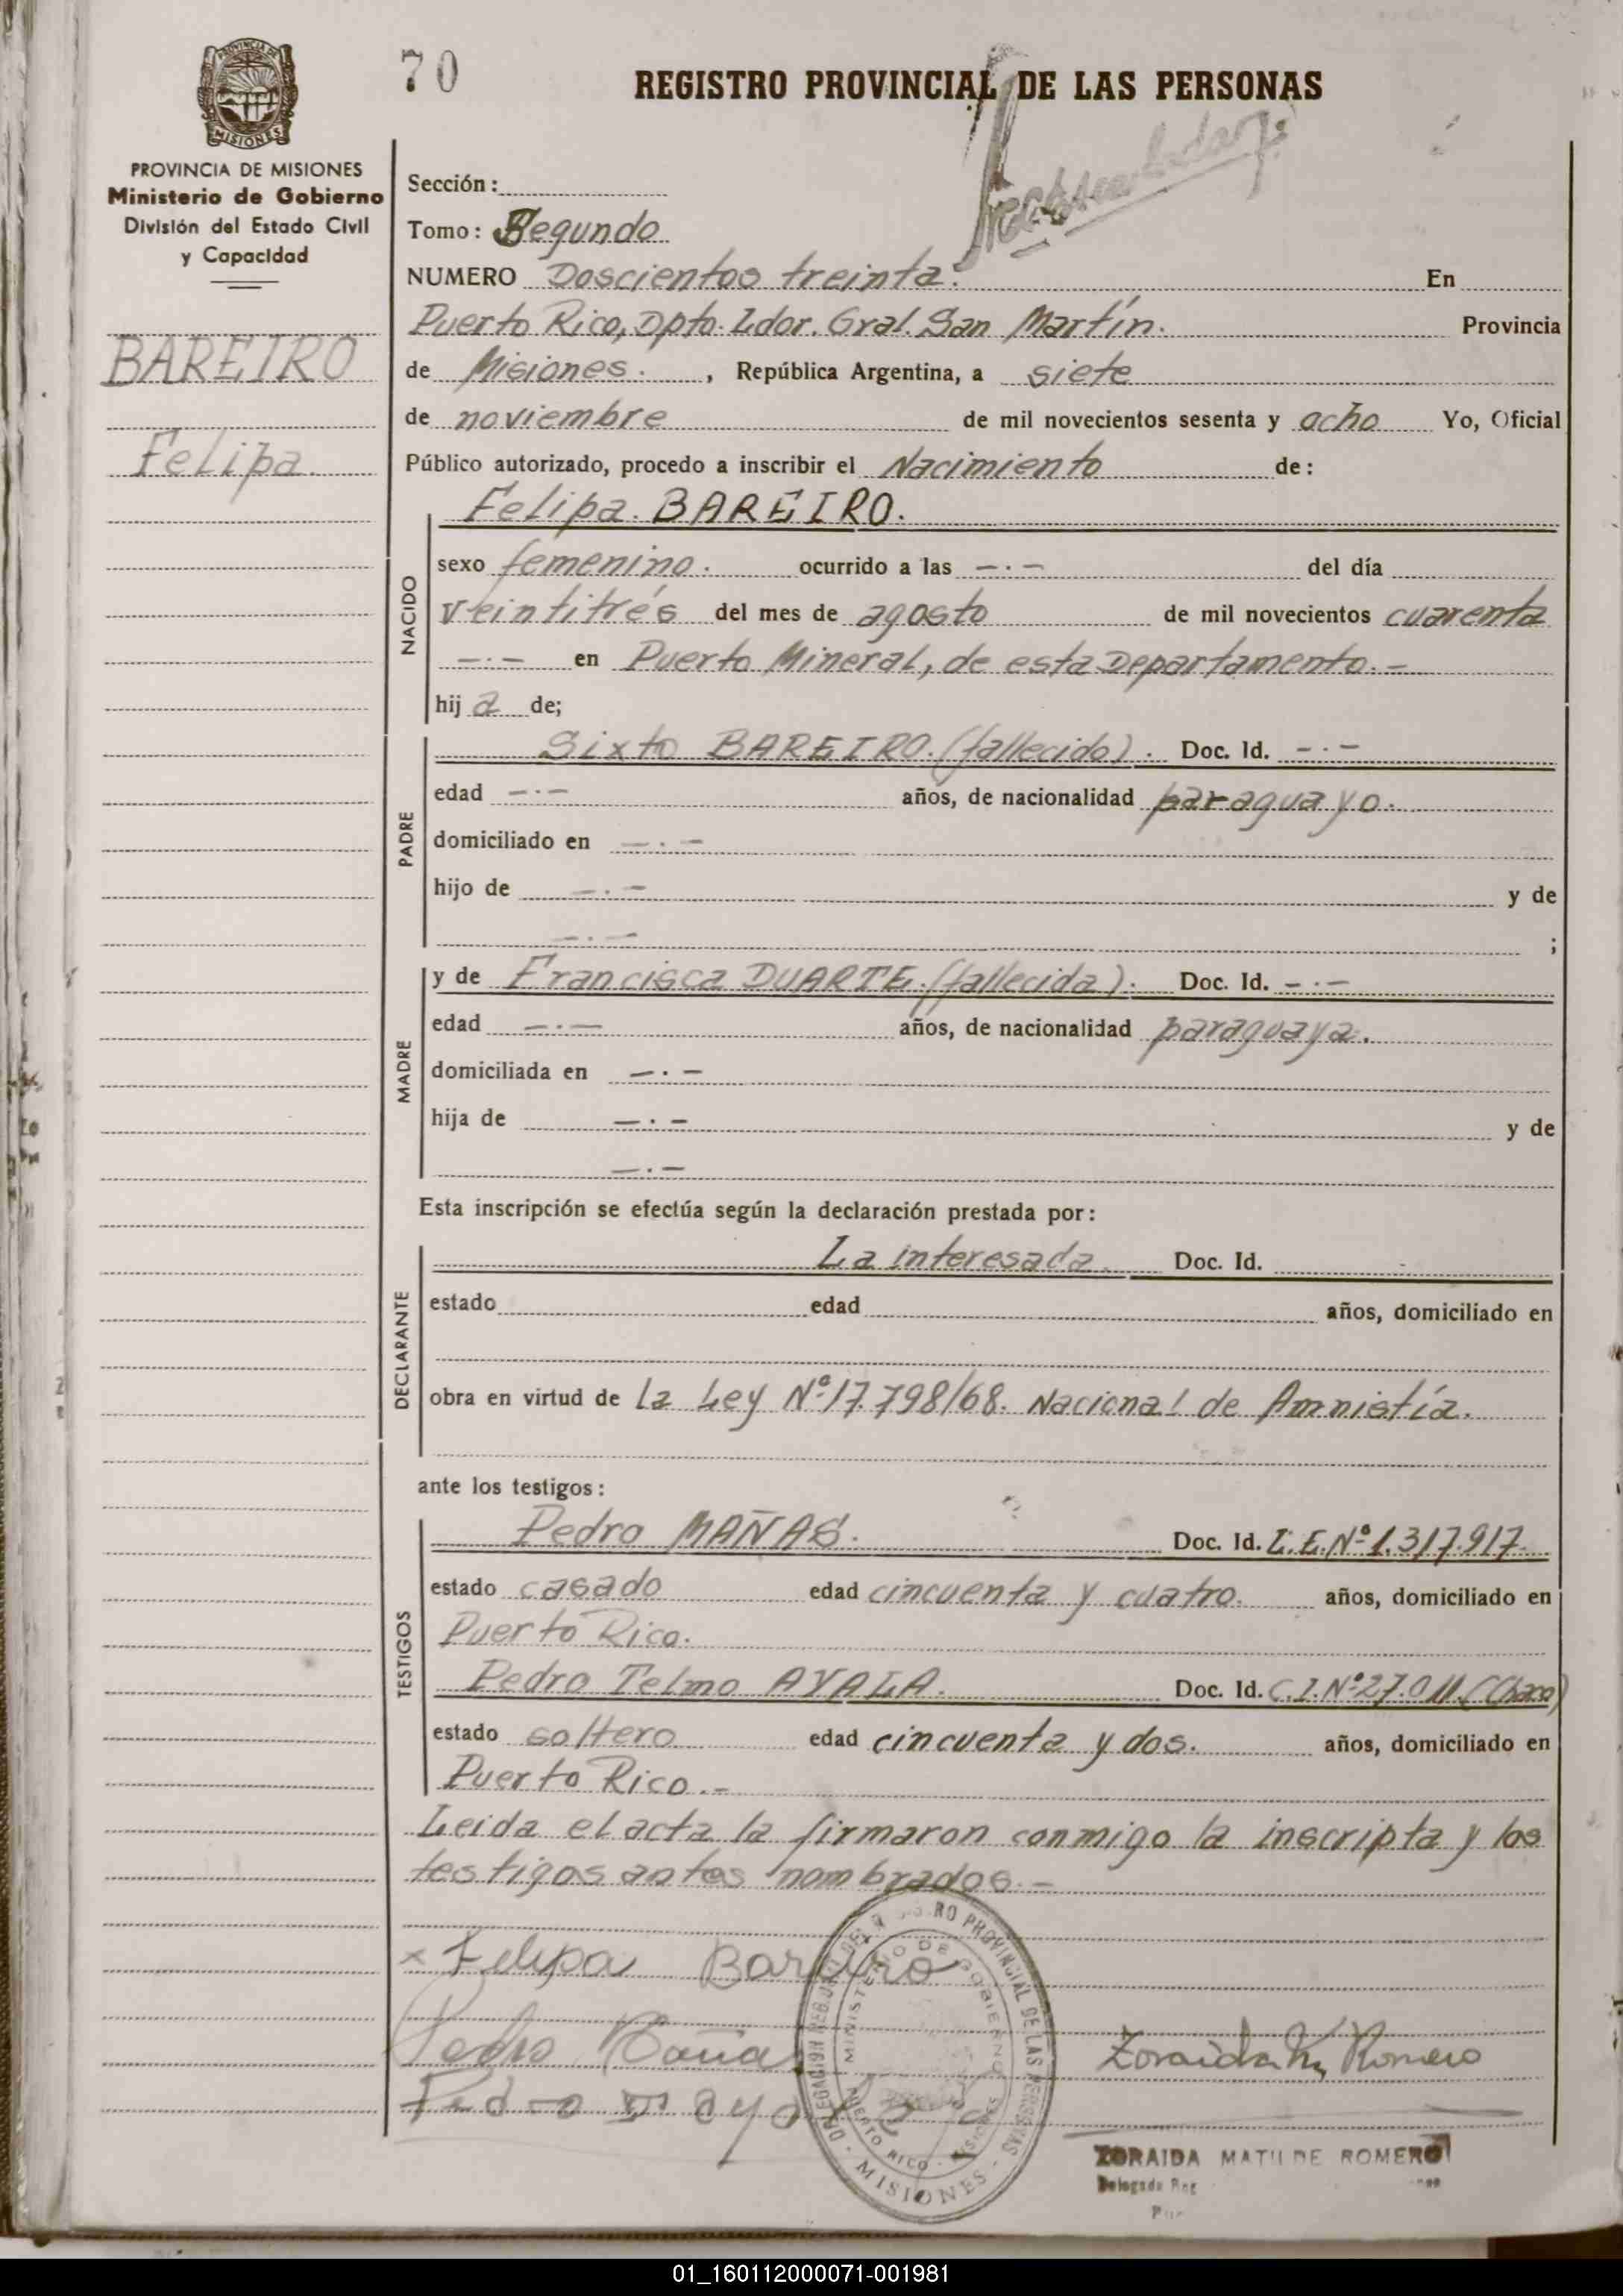 70
REGISTRO PROVINCIAL DE LAS PERSONAS
PROVINCIA DE MISIONES
PROVINCIA DE MISIONES
Ministerio de Gobierno
División del Estado Civil
y Capacidad
BAREIRO
Felipa.
Sección:
Tomo: Segundo
NUMERO Doscientos treinta. En
Puerto Rico, Dpto. Ldor. Gral. San Martín. Provincia
de Misiones. , República Argentina, a siete
de noviembre de mil novecientos sesenta y ocho Yo, Oficial
Público autorizado, procedo a inscribir el Nacimiento de:
Felipa BAREIRO.
NACIDO
sexo femenino. ocurrido a las —.— del día
veintitrés del mes de agosto de mil novecientos cuarenta
—.— en Puerto Mineral, de esta Departamento.—
hija de;
PADRE
Sixto BAREIRO. (fallecido). Doc. Id. —.—
edad —.— años, de nacionalidad paraguayo.
domiciliado en —.—
hijo de —.— y de
—.— ;
MADRE
y de Francisca DUARTE. (fallecida). Doc. Id. —.—
edad —.— años, de nacionalidad paraguaya.
domiciliada en —.—
hija de —.— y de
—.—
Esta inscripción se efectúa según la declaración prestada por:
DECLARANTE
La interesada. Doc. Id.
estado edad años, domiciliado en
obra en virtud de la Ley Nº 17.798/68. Nacional de Amnistía.
ante los testigos:
TESTIGOS
Pedro MAÑAS. Doc. Id. L.E. Nº 1.317.917.
estado casado edad cincuenta y cuatro. años, domiciliado en
Puerto Rico.
Pedro Telmo AYALA. Doc. Id. C.I. Nº 27.011. (Chaco)
estado soltero edad cincuenta y dos. años, domiciliado en
Puerto Rico.—
Leida el acta la firmaron conmigo la inscripta y los
testigos antes nombrados.—
x Felipa Bareiro
Pedro Mañas
Zoraida M. Romero
Pedro T. Ayala
PROVINCIAL DE LAS PERSONAS
MINISTERIO DE GOBIERNO
PUERTO RICO - MISIONES
MISIONES
ZORAIDA MATILDE ROMERO
01_160112000071-001981